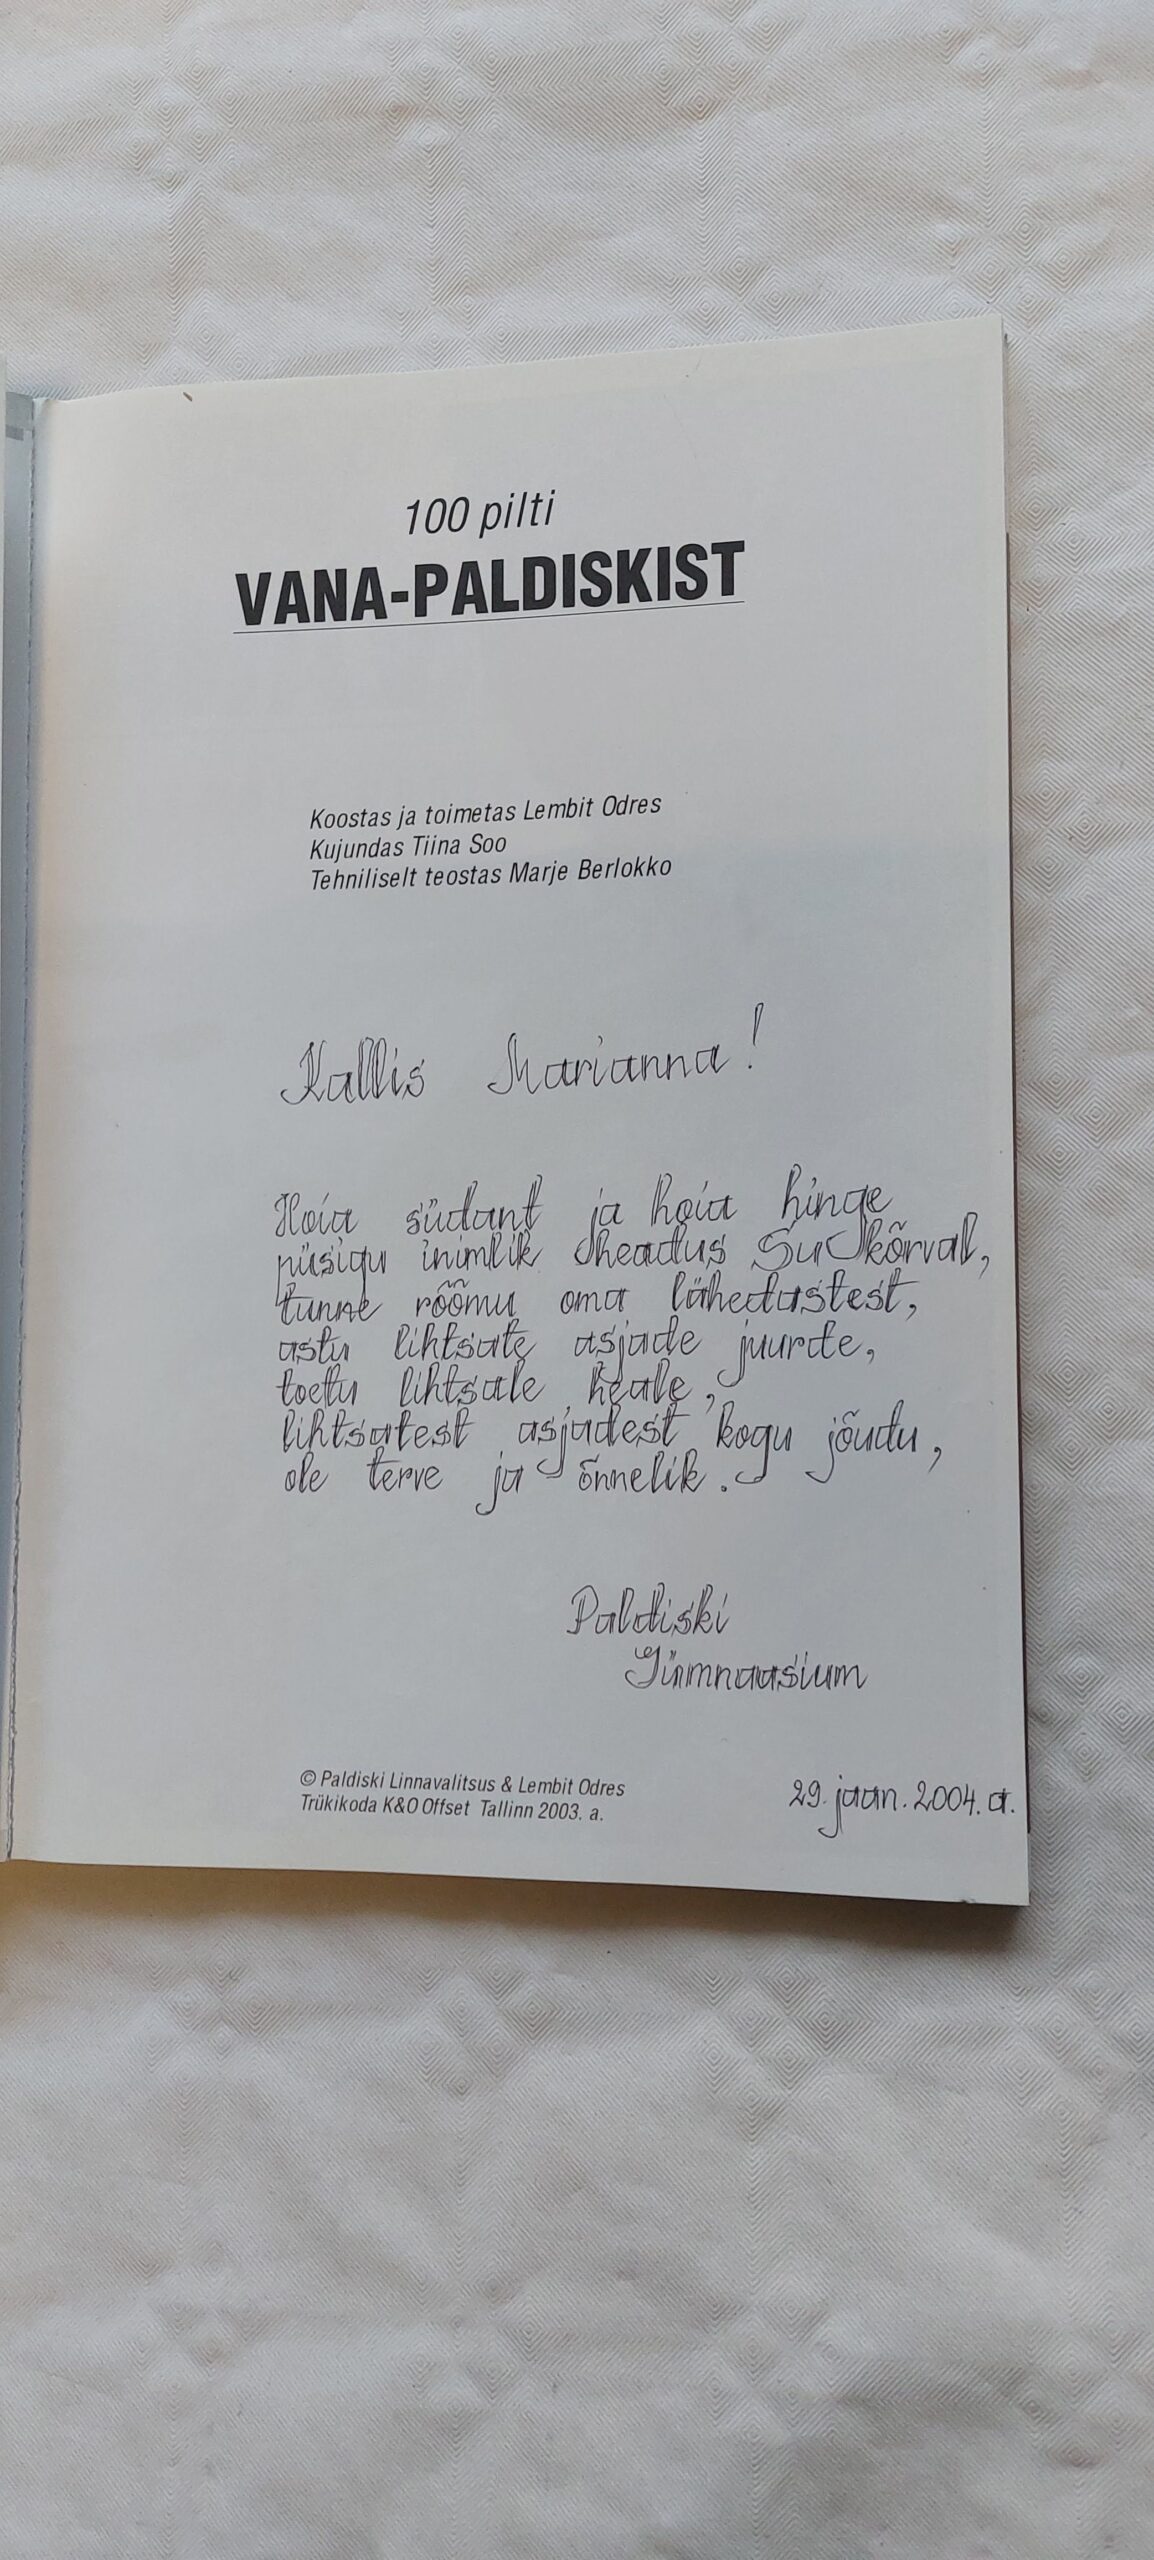 100 pilti
VANA-PALDISKIST
Koostas ja toimetas Lembit Odres
Kujundas Tiina Soo
Tehniliselt teostas Marje Berlokko
Kallis Marianna!
Hoia südant ja hoia hinge
püsigu inimlik headus Su kõrval,
tunne rõõmu oma lähedastest,
astu lihtsate asjade juurde,
toetu lihtsale heale,
lihtsatest asjadest kogu jõudu,
ole terve ja õnnelik.
Paldiski
Gümnaasium
© Paldiski Linnavalitsus & Lembit Odres
Trükikoda K&O Offset Tallinn 2003. a.
29. jaan. 2004. a.